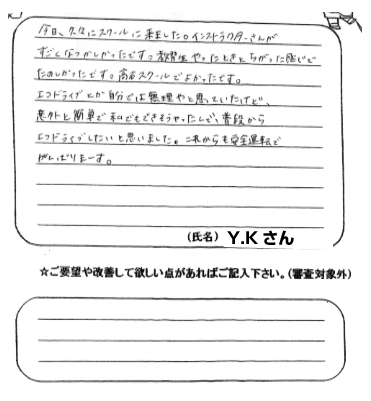 今日、久々にスクールに来ました。インストラクターさんが
すごくなつかしかったです。教習生やったときとちがった感じで
たのしかったです。高石スクールでよかったです。
エコドライブとか自分では無理やと思っていたけど、
意外と簡単で私でもできそうやったんで、普段から
エコドライブしたいと思いました。これからも安全運転で
がんばりまーす。
(氏名) Y.K さん
☆ご要望や改善して欲しい点があればご記入下さい。(審査対象外)